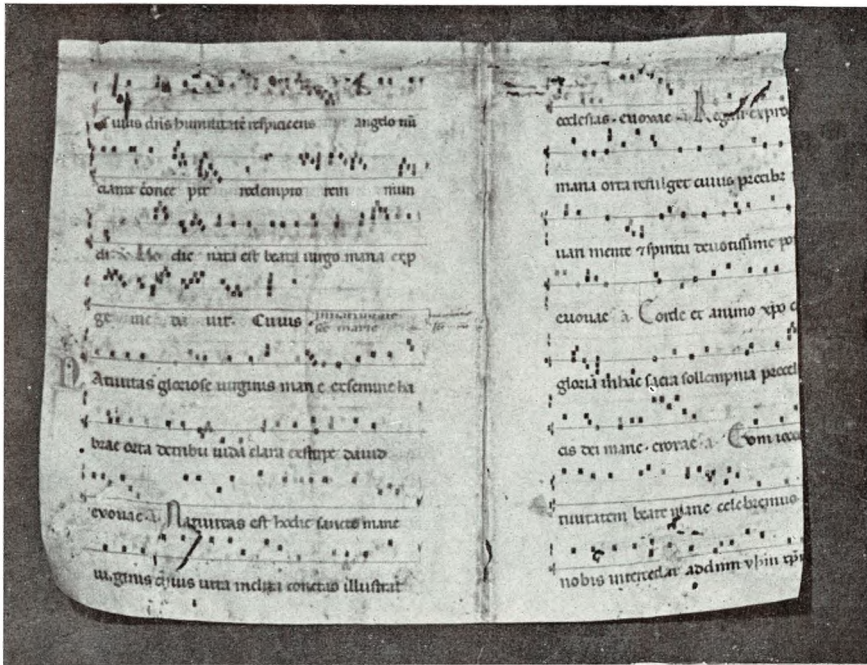 cuius dns humilitatē respiciens angelo nū
ciante conce pit redempto rem mun
di. Ho die nata est beata uirgo maria exp
ge nie da uit. Cuius
Natiuitas gloriose uirginis marie ex semine ha
brae orta de tribu iuda clara ex stirpe dauid
evovae. a Natiuitas est hodie sancte marie
uirginis cuius uita inclita cunctas illustrat
ecclesias. evovae a Regali ex pro
maria orta refulget cuius precibꝰ
uari mente ⁊ spiritu deuotissime po
evovae a Corde et animo xp̄o c
gloriā in hac sacra sollempnia precel
cis dei marie. evovae a Cum iocu
tiuitatem beate marie celebremus
nobis intercedat ad dnm